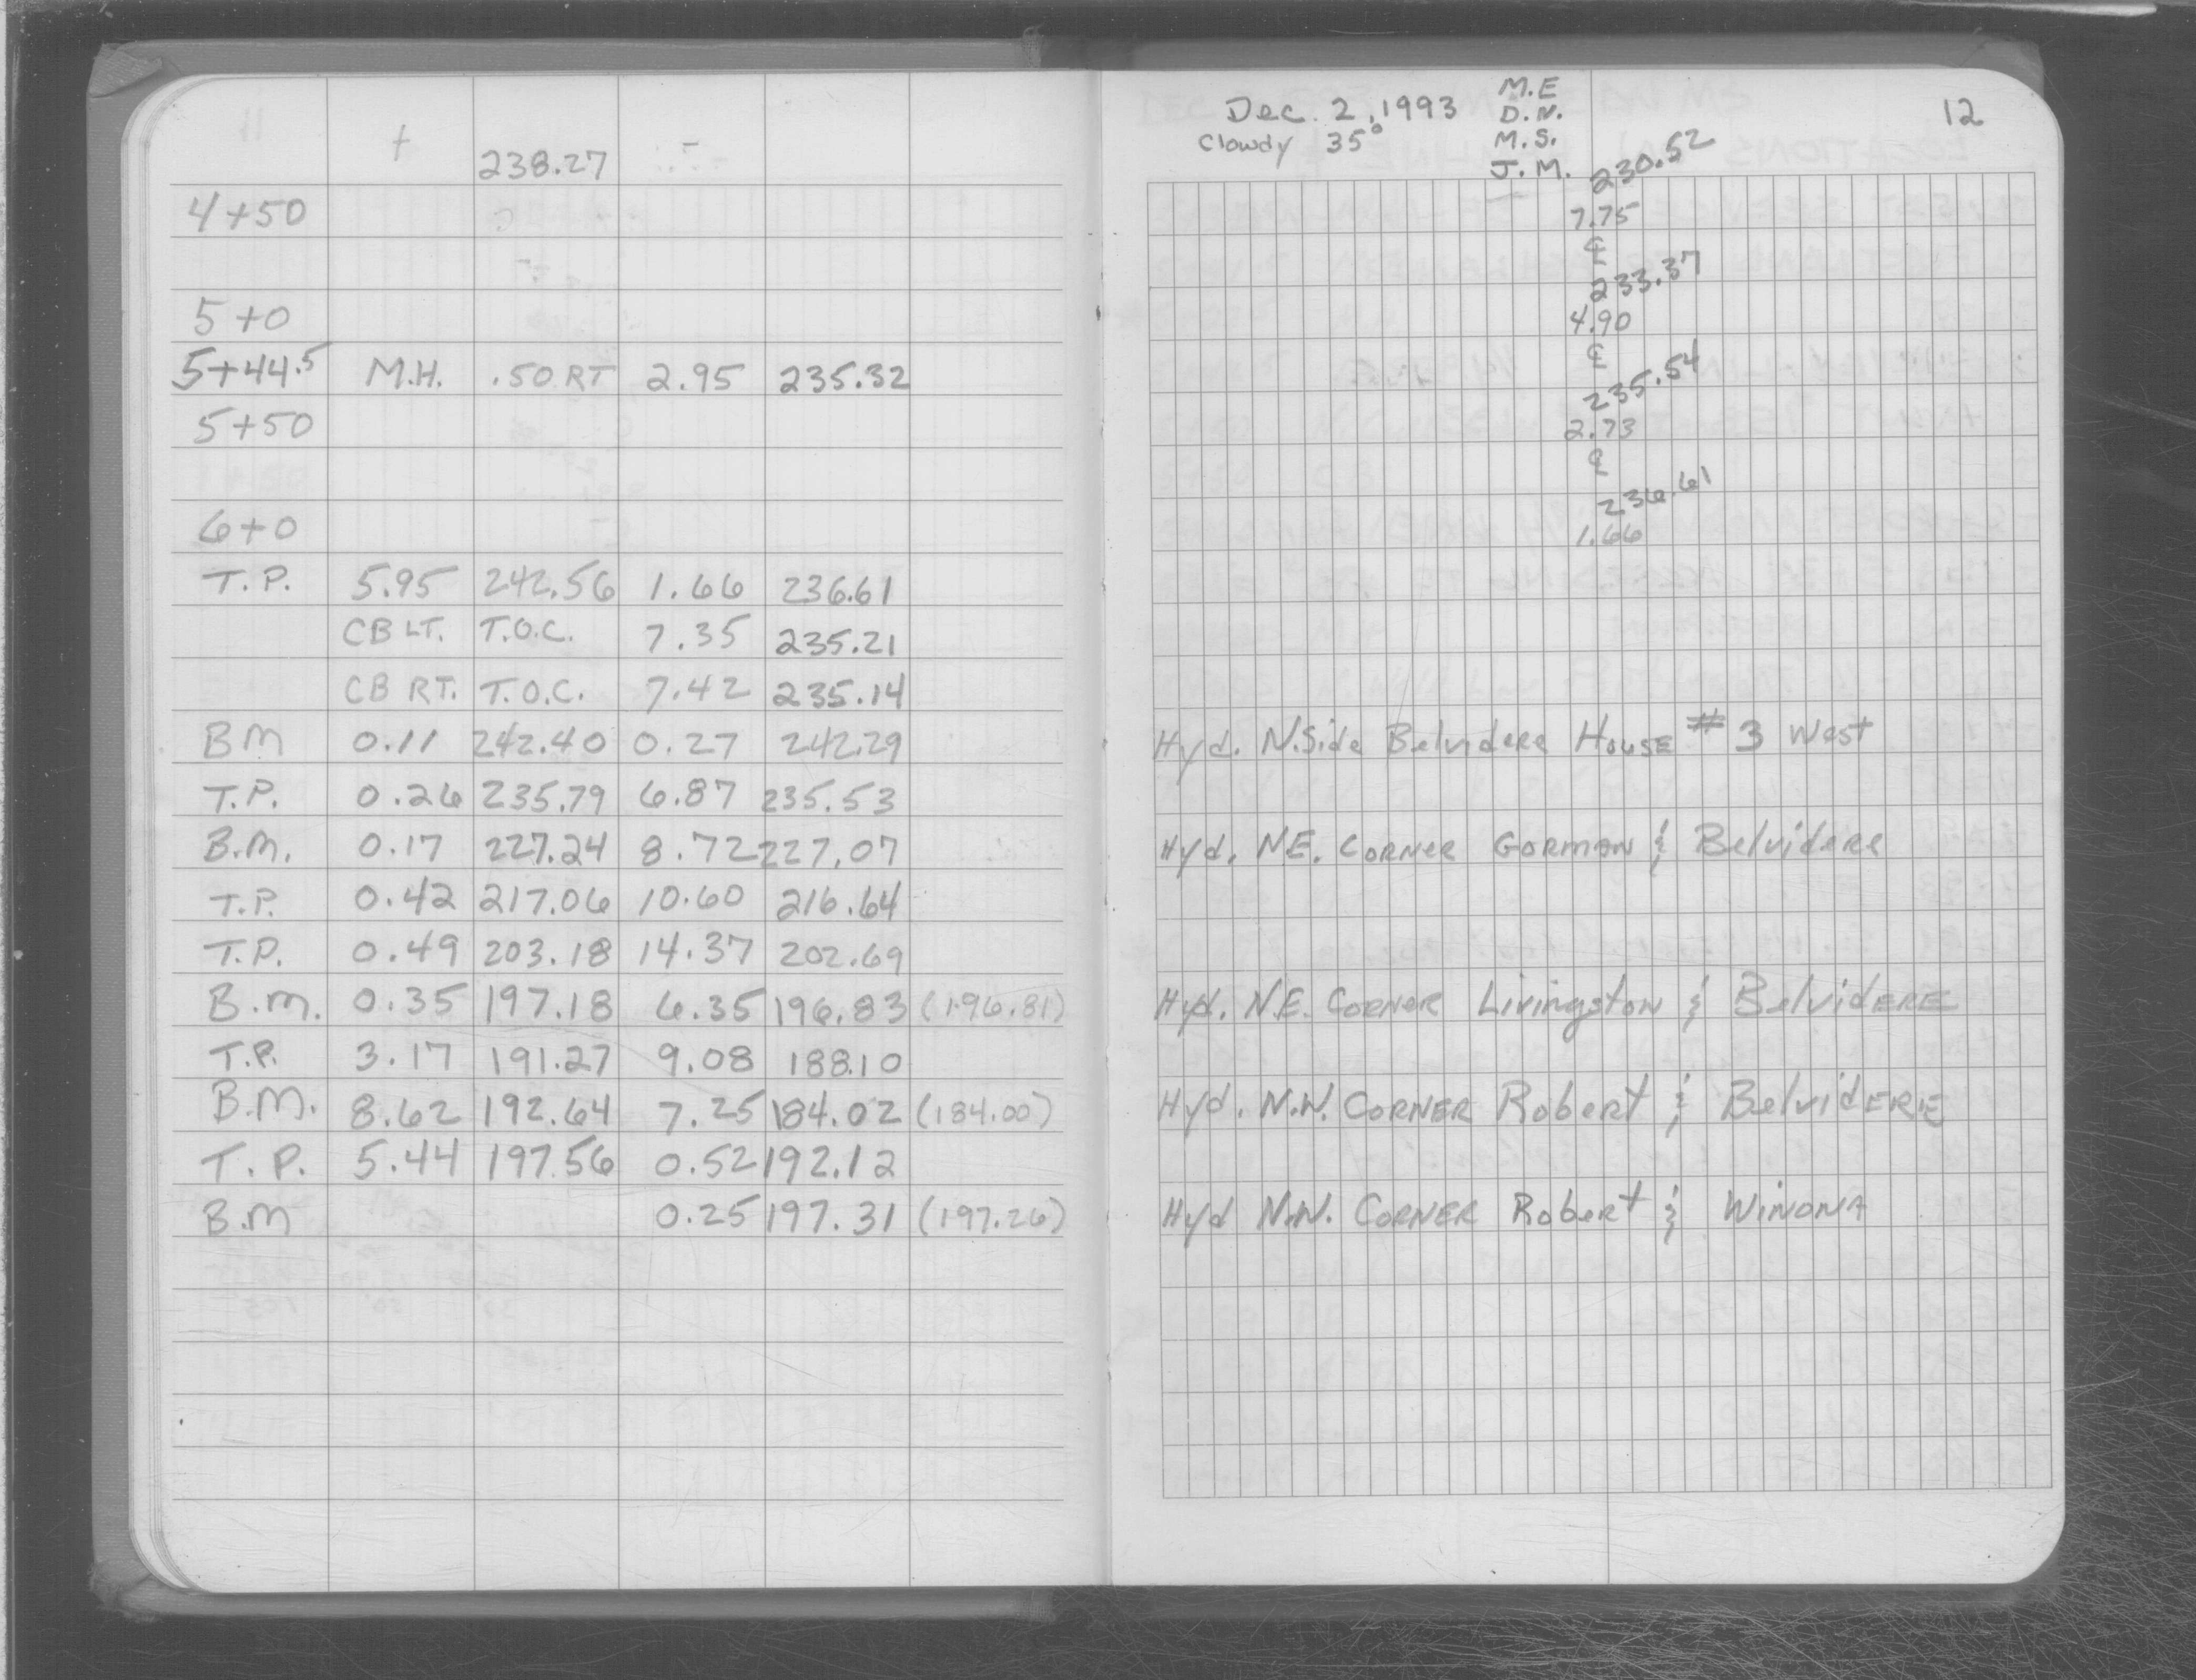 + 238.27 -
4+50
5+0
5+44.5 M.H. .50 RT 2.95 235.32
5+50
6+0
T.P. 5.95 242.56 1.66 236.61
CB LT. T.O.C. 7.35 235.21
CB RT. T.O.C. 7.42 235.14
BM 0.11 242.40 0.27 242.29
T.P. 0.26 235.79 6.87 235.53
B.M. 0.17 227.24 8.72 227.07
T.P. 0.42 217.06 10.60 216.64
T.P. 0.49 203.18 14.37 202.69
B.M. 0.35 197.18 6.35 196.83 (196.81)
T.P. 3.17 191.27 9.08 188.10
B.M. 8.62 192.64 7.25 184.02 (184.00)
T.P. 5.44 197.56 0.52 192.12
B.M 0.25 197.31 (197.26)
Dec. 2, 1993
Clowdy 35°
M.E
D.N.
M.S.
J.M.
12
230.52
7.75
℄
233.37
4.90
℄
235.54
2.73
℄
236.61
1.66
Hyd. N.Side Belvidere House #3 West
Hyd. NE. Corner Gorman & Belvidere
Hyd. N.E. Corner Livingston & Belvidere
Hyd. N.W. Corner Robert & Belvidere
Hyd N.W. Corner Robert & Winona